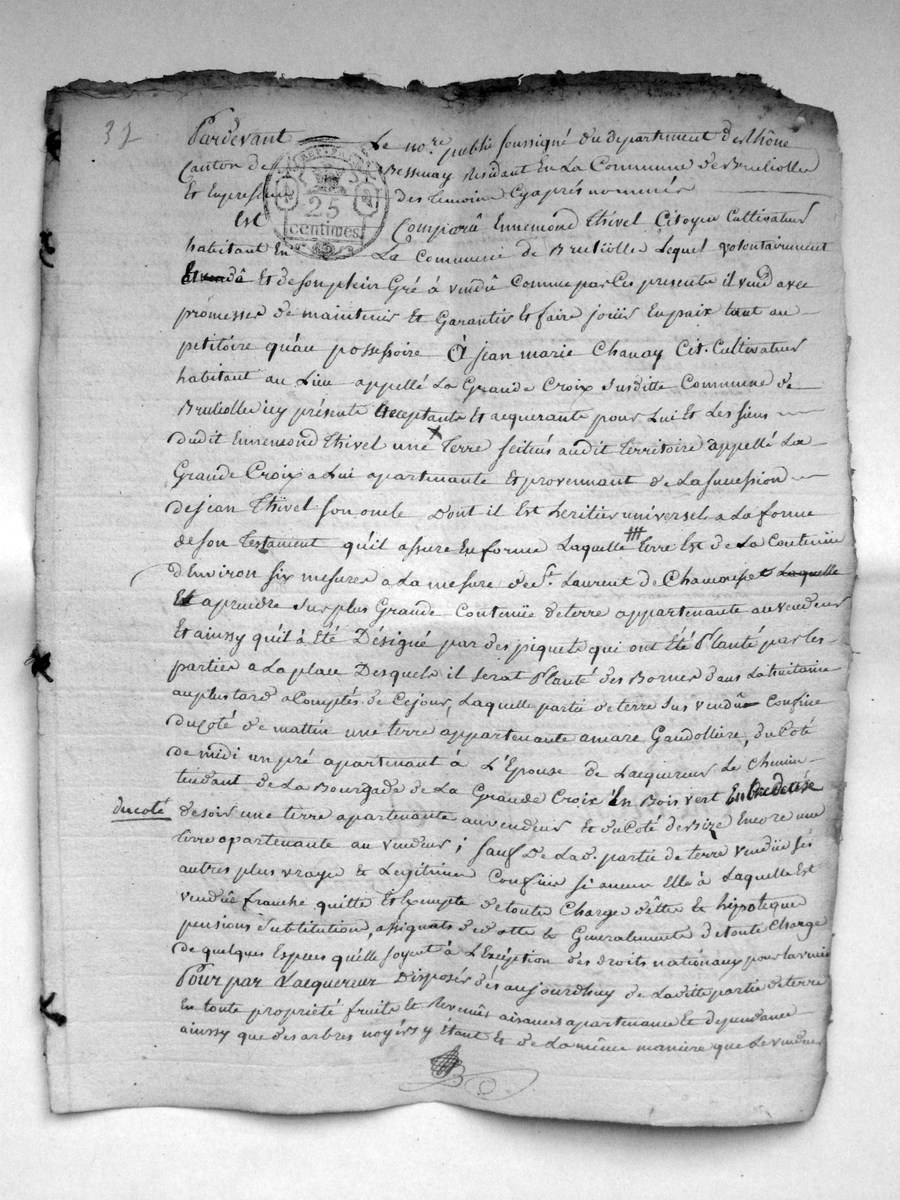 32
Pardevant Le no.re public soussigné du département du Rhône
Canton de Bessenay Résidant En La Commune de Brulliolle
Et En présence des témoins Cy après nommés
RÉP. FRA.
25
centimes
Est Comparû Ennemond Thivel Citoyen Cultivateur
habitant En La Commune de Brulliolle Lequel volontairement
Et de son plein Gré à vendû Comme par Ces présente il vend avec
promesses de maintenir Et Garantir Et faire jouir En paix tant au
petitoire qu'au possessoire à jean marie Chanay Cit. Cultivateur
habitant au Lieu appellé La Grande Croix Susditte Commune de
Brulliolle icy présente Acceptante Et acquerante pour Lui Et Les siens
dudit Ennemond Thivel une Terre scitués audit territoire appellé La
Grande Croix a Lui apartenante Et provennant de La succession
de jean Thivel son oncle Dont il Est heritier universel a La forme
de son Testament qu'il assure En forme Laquelle terre Est de La Contenüe
d'Environ six mesures a La mesure de St. Laurent de Chamousset Laquelle
Est aprendre sur plus Grande Contenüe de terre appartenante au vendeur
Et ainssy quil à Eté Désigné par des piquets qui ont Eté Planté par les
parties a La place Desquels il serat Planté des Bornes dans La huitaine
au plus tard a Comptés de Cejour, Laquelle partie de terre sus vendüe Confine
du Coté de mattin une terre appartenante a marc Gaudollière, du Coté
de midi un pré apartenant à L'Epouse de Lacquereur Le Chemin
tendant de La Bourgade de La Grande Croix En Bois vert Entredeux
du coté
de soir une terre apartenante au vendeur Et du Coté de bize Encore une
terre apartenante au vendeur ; sauf De Lad. partie de terre vendüe ses
autres plus vrayes Et Legitimes Confins si aucun Elle à Laquelle Est
vendüe franche quitte Et Exempte de toute Charge dette Et hipoteque
pensions substitution, assignats de dotte Et Generalemente de toute Charge
de quelques Especes qu'elle soyent à L'Exception des droits nationaux pour l'avenir
Pour par Lacquereur Disposés dès aujourdhuy de Laditte partie de terre
En toute propriété fruits Et Revenûs aisances apartenance Et dependance
ainssy que des arbres noyers y Etant Et de La même manière que Le vendeur